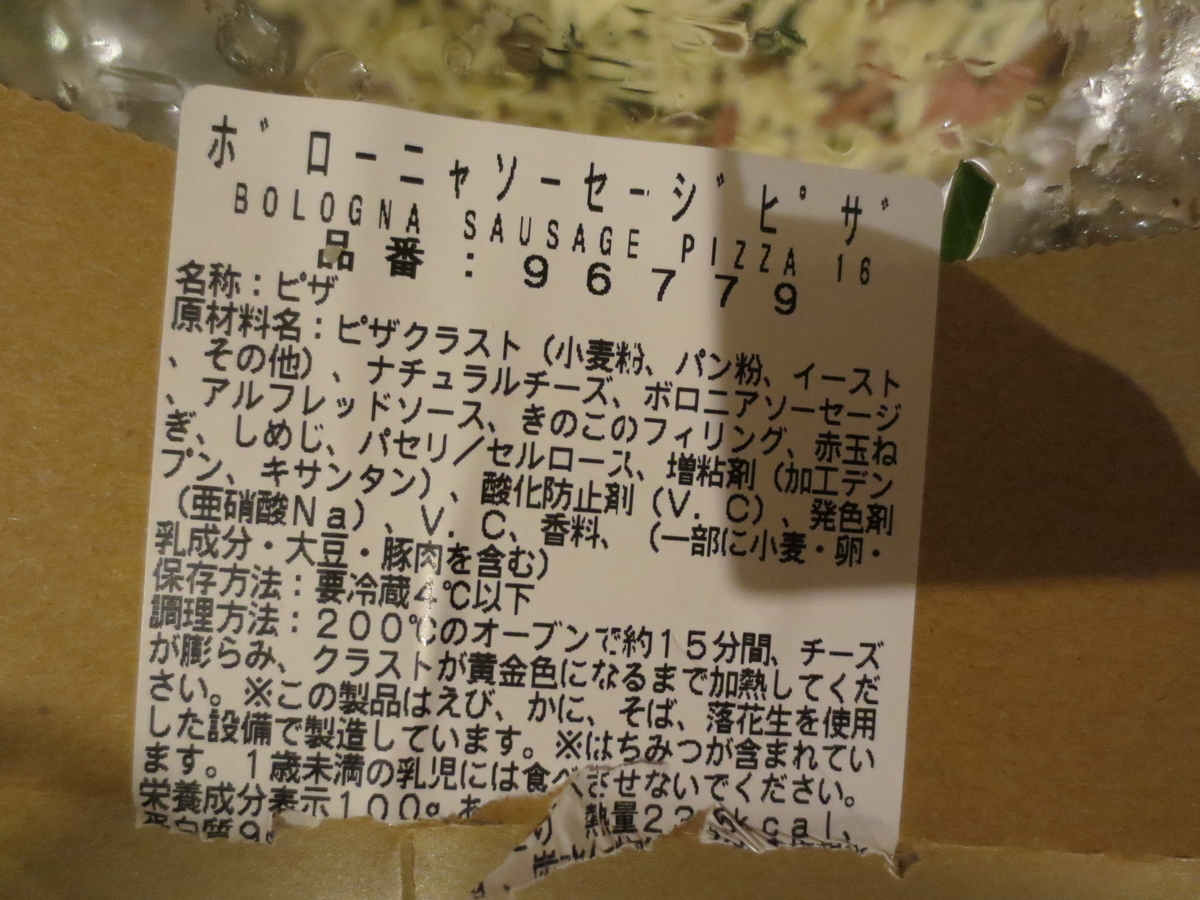 ボローニャソーセージピザ
BOLOGNA SAUSAGE PIZZA 16
品番:96779
名称:ピザ
原材料名:ピザクラスト(小麦粉、パン粉、イースト
、その他)、ナチュラルチーズ、ボロニアソーセージ
、アルフレッドソース、きのこのフィリング、赤玉ね
ぎ、しめじ、パセリ/セルロース、増粘剤(加工デン
プン、キサンタン)、酸化防止剤(V.C)、発色剤
(亜硝酸Na)、V.C、香料、(一部に小麦・卵・
乳成分・大豆・豚肉を含む)
保存方法:要冷蔵4℃以下
調理方法:200℃のオーブンで約15分間、チーズ
が膨らみ、クラストが黄金色になるまで加熱してくだ
さい。※この製品はえび、かに、そば、落花生を使用
した設備で製造しています。※はちみつが含まれてい
ます。1歳未満の乳児には食べさせないでください。
栄養成分表示100g あ り 熱量23 kcal、
蛋白質9g